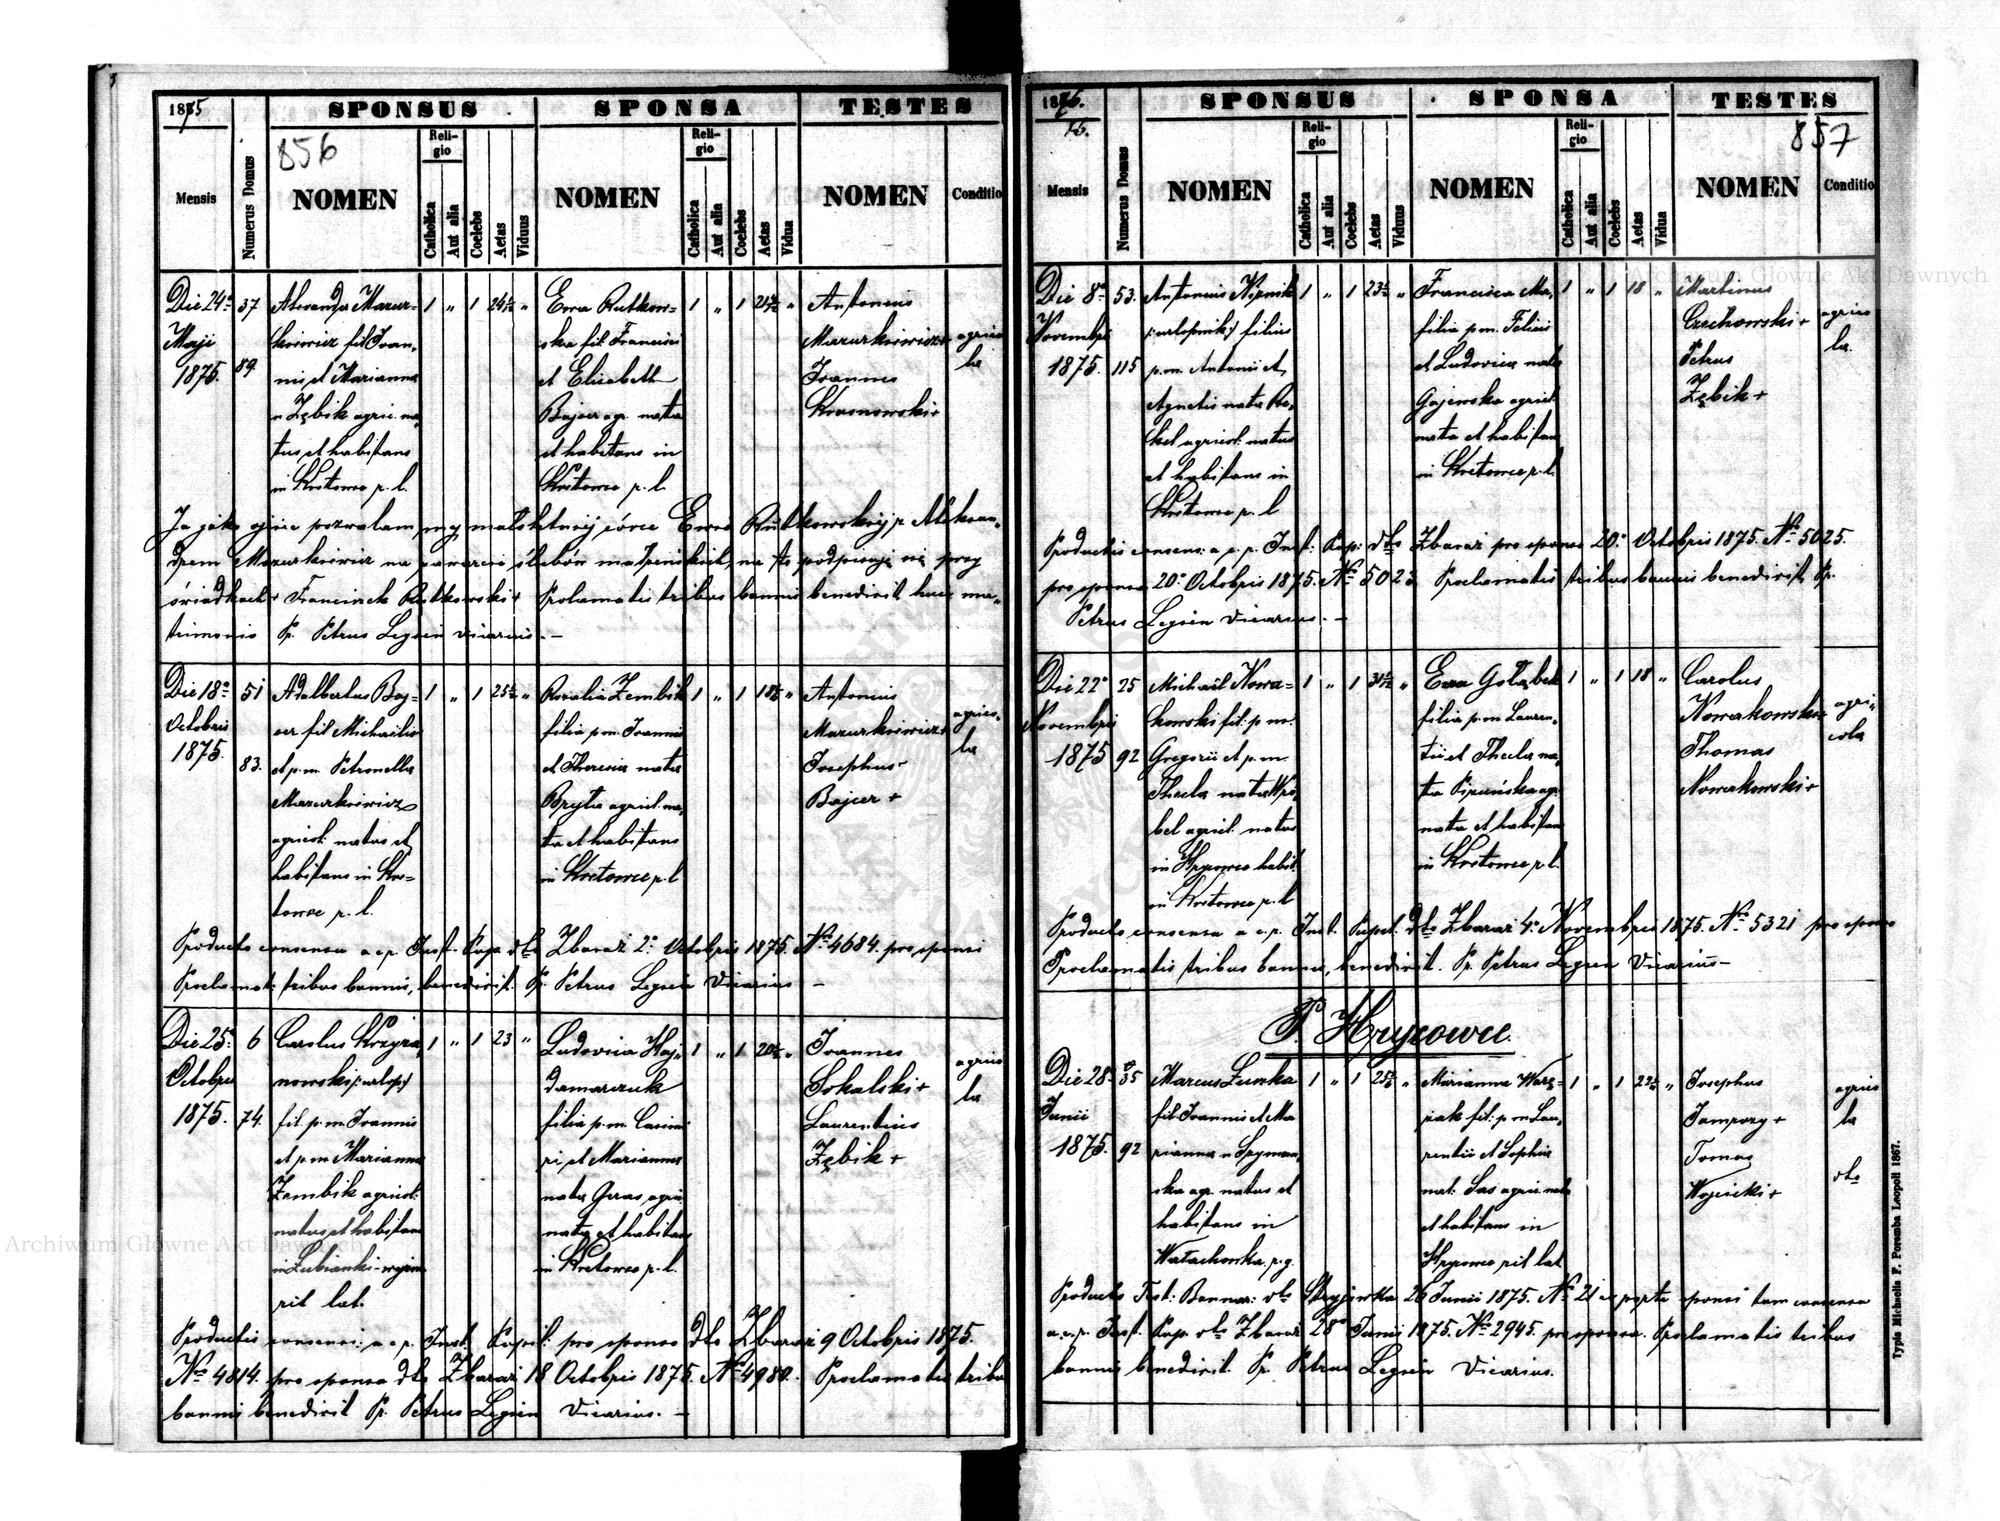 1875
SPONSUS
SPONSA
TESTES
856
Mensis
Numerus Domus
NOMEN
Religio
Catholica
Aut alia
Coelebs
Aetas
Viduus
NOMEN
Religio
Catholica
Aut alia
Coelebs
Aetas
Vidua
NOMEN
Conditio
Die 24ª
Maji
1875.
37
89
Alexander Mazur-
kiewicz fil Joan-
nis et Marianna
n Zębik agric. na-
tus et habitans
in Kretowce r. l.
1 " 1 24½ "
Ewa Rutkow-
ska fil Francisci
et Elisabeth
Bajcer agr. nata
et habitans in
Kretowce r. l.
1 " 1 21½ "
Antonius
Mazurkiewicz+
Joannes
Krasnowski+
agrico
la
Ja jako ojciec pozwalam mej małoletniej córce Ewie Rutkowskiej z Aleksan-
drem Mazurkiewicz na zawarcie ślubów małżeńskich, na to podpisuję się przy
świadkach + Franciszek Rutkowski + Prolamatis tribus bannis benedixit huic ma-
trimonio Pr. Petrus Legsin vicarius. —
Die 18ª
Octobris
1875.
51
83.
Adalbertus Baj-
cer fil Michaelis
et p.m. Petronella
Mazurkiewicz
agricol. natus et
habitans in Kre-
towce r. l.
1 " 1 25½ "
Rosalia Zembik
filia p.m. Joannis
et Theresia nata
Bryta agricol. na-
ta et habitans
in Kretowce r. l
1 " 1 18½ "
Antonius
Mazurkiewicz+
Josephus
Bajcer +
agrico-
la
Producto consensu a c.p. Inst. Pup. dto Zbaraż 2ª Octobris 1875. No 4684. pro sponsi
Proclamat. tribus bannis, benedixit. Pr. Petrus Legsin Vicarius —
Die 25ª
Octobris
1875.
6
74.
Carolus Krzyża-
nowski /:urlop:/
fil. p.m. Joannis
et p.m Marianna
Zembik agricol.
natus et habitans
in Lubianki-wyżne
rit lat.
1 " 1 23 "
Ludovica Haj-
damarczuk
filia p.m. Casimi-
ri et Marianna
nata Geras, agric.
nata et habitans
in Kretowce r. l.
1 " 1 20½ "
Joannes
Sokalski+
Laurentius
Zębik +
agrico
la
Productis consensi: a c.p. Inst. Pupil: pro sponso dto Zbaraż 9 Octobris 1875.
No 4814. pro sponsa dto Zbaraż 18 Octobris 1875. No 4980. Proclamatis tribus
bannis benedixit Pr. Petrus Legsin Vicarius. —
1875.
75.
SPONSUS
SPONSA
TESTES
857
Mensis
Numerus Domus
NOMEN
Religio
Catholica
Aut alia
Coelebs
Aetas
Viduus
NOMEN
Religio
Catholica
Aut alia
Coelebs
Aetas
Vidua
NOMEN
Conditio
Die 8ª
Novembris
1875.
53.
115
Antonius
/:urlopnik:/ filius
p.m. Antonii et
Agnetis nata
agricol. natus
et habitans in
Kretowce r. l
1 " 1 23½ "
Francisca
filia p.m. Felicis
et Ludovica nata
Gajewska agricol
nata et habitans
in Kretowce r. l.
1 " 1 18 "
Martinus
Czechowski+
Petrus
Zębik+
agrico
la.
Productis consens: a c.p. Inst: Pup: dto Zbaraż pro sponso 20ª Octobris 1875. No 5025.
pro sponsa 20ª Octobris 1875. No 5023 Proclamatis tribus bannis benedixit, Pr.
Petrus Legsin Vicarius. —
Die 22ª
Novembris
1875
25
92
Michaël Nowa-
kowski fil. p.m.
Gregorii et p.m.
Thecla nata
agricol. natus
in Hrycowce habit.
in Kretowce r. l
1 " 1 31½ "
Ewa Gołąbek
filia p.m Lauren-
tii et Thecla na-
ta agr.
nata et habitans
in Kretowce r. l.
1 " 1 18 "
Carolus
Nowakowski+
Thomas
Nowakowski+
agri-
cola
Producto consensu a c.p. Inst. Pupil. dto Zbaraż 4ª Novembris 1875. No 5321 pro sponsa
Proclamatis tribus bannis, benedixit. Pr. Petrus Legsin Vicarius —
P. Hrycowce.
Die 28.
Junii
1875.
35
92
Marcus
fil. Joannis et Ma-
rianna n Szyman-
ska agr. natus et
habitans in
Watachowka. r. g.
1 " 1 25½ "
Marianna
fil. p.m Lau-
rentii et Sophia
nat. Sas agric. nata
et habitans in
Hrycowce rit lat
1 " 1 22½ "
Josephus
Jamrozy +
Tomas
Wojcicki+
agrico
la
dto
Producto Test: Bannor: dto Stryjówka 26 Junii 1875. No 21 sponsi tum consensu
a.c.p. Inst. Pup. dto Zbaraż 28ª Junii 1875. No 2945. pro sponsa. Proclamatis tribus
bannis benedixit. Pr. Petrus Legsin Vicarius.
Typis Michaelis F. Poremba Leopoli 1867.
Archiwum Główne Akt Dawnych
Archiwum Główne Akt Dawnych